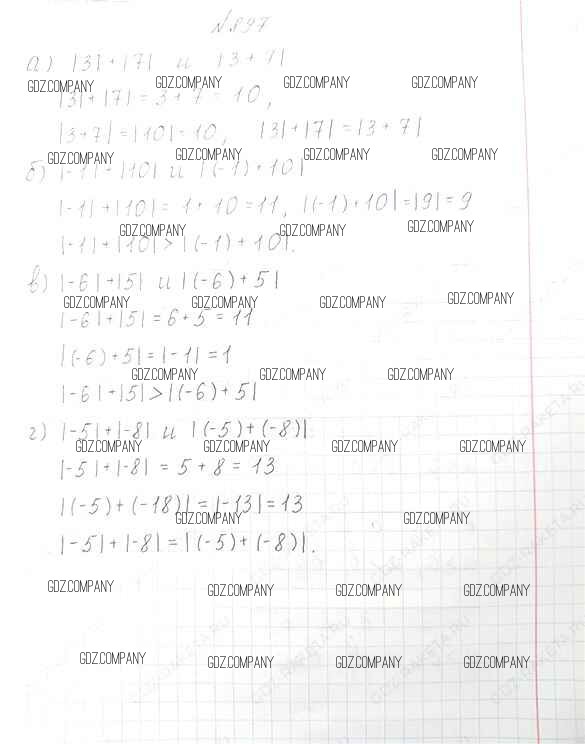 №897
а) |3|+|7| и |3+7|
GDZ.COMPANY GDZ.COMPANY GDZ.COMPANY GDZ.COMPANY
|3|+|7|=3+7=10,
|3+7|=|10|=10, |3|+|7|=|3+7|
GDZ.COMPANY GDZ.COMPANY GDZ.COMPANY GDZ.COMPANY
б) |-1|+|10| и |(-1)+10|
|-1|+|10|=1+10=11, |(-1)+10|=|9|=9
GDZ.COMPANY GDZ.COMPANY GDZ.COMPANY
|-1|+|10|>|(-1)+10|.
в) |-6|+|5| и |(-6)+5|
GDZ.COMPANY GDZ.COMPANY GDZ.COMPANY GDZ.COMPANY
|-6|+|5|=6+5=11
|(-6)+5|=|-1|=1
GDZ.COMPANY GDZ.COMPANY GDZ.COMPANY
|-6|+|5|>|(-6)+5|
г) |-5|+|-8| и |(-5)+(-8)|
GDZ.COMPANY GDZ.COMPANY GDZ.COMPANY GDZ.COMPANY
|-5|+|-8|=5+8=13
|(-5)+(-18)|=|-13|=13
GDZ.COMPANY GDZ.COMPANY
|-5|+|-8|=|(-5)+(-8)|.
GDZ.COMPANY GDZ.COMPANY GDZ.COMPANY GDZ.COMPANY
GDZ.COMPANY GDZ.COMPANY GDZ.COMPANY GDZ.COMPANY